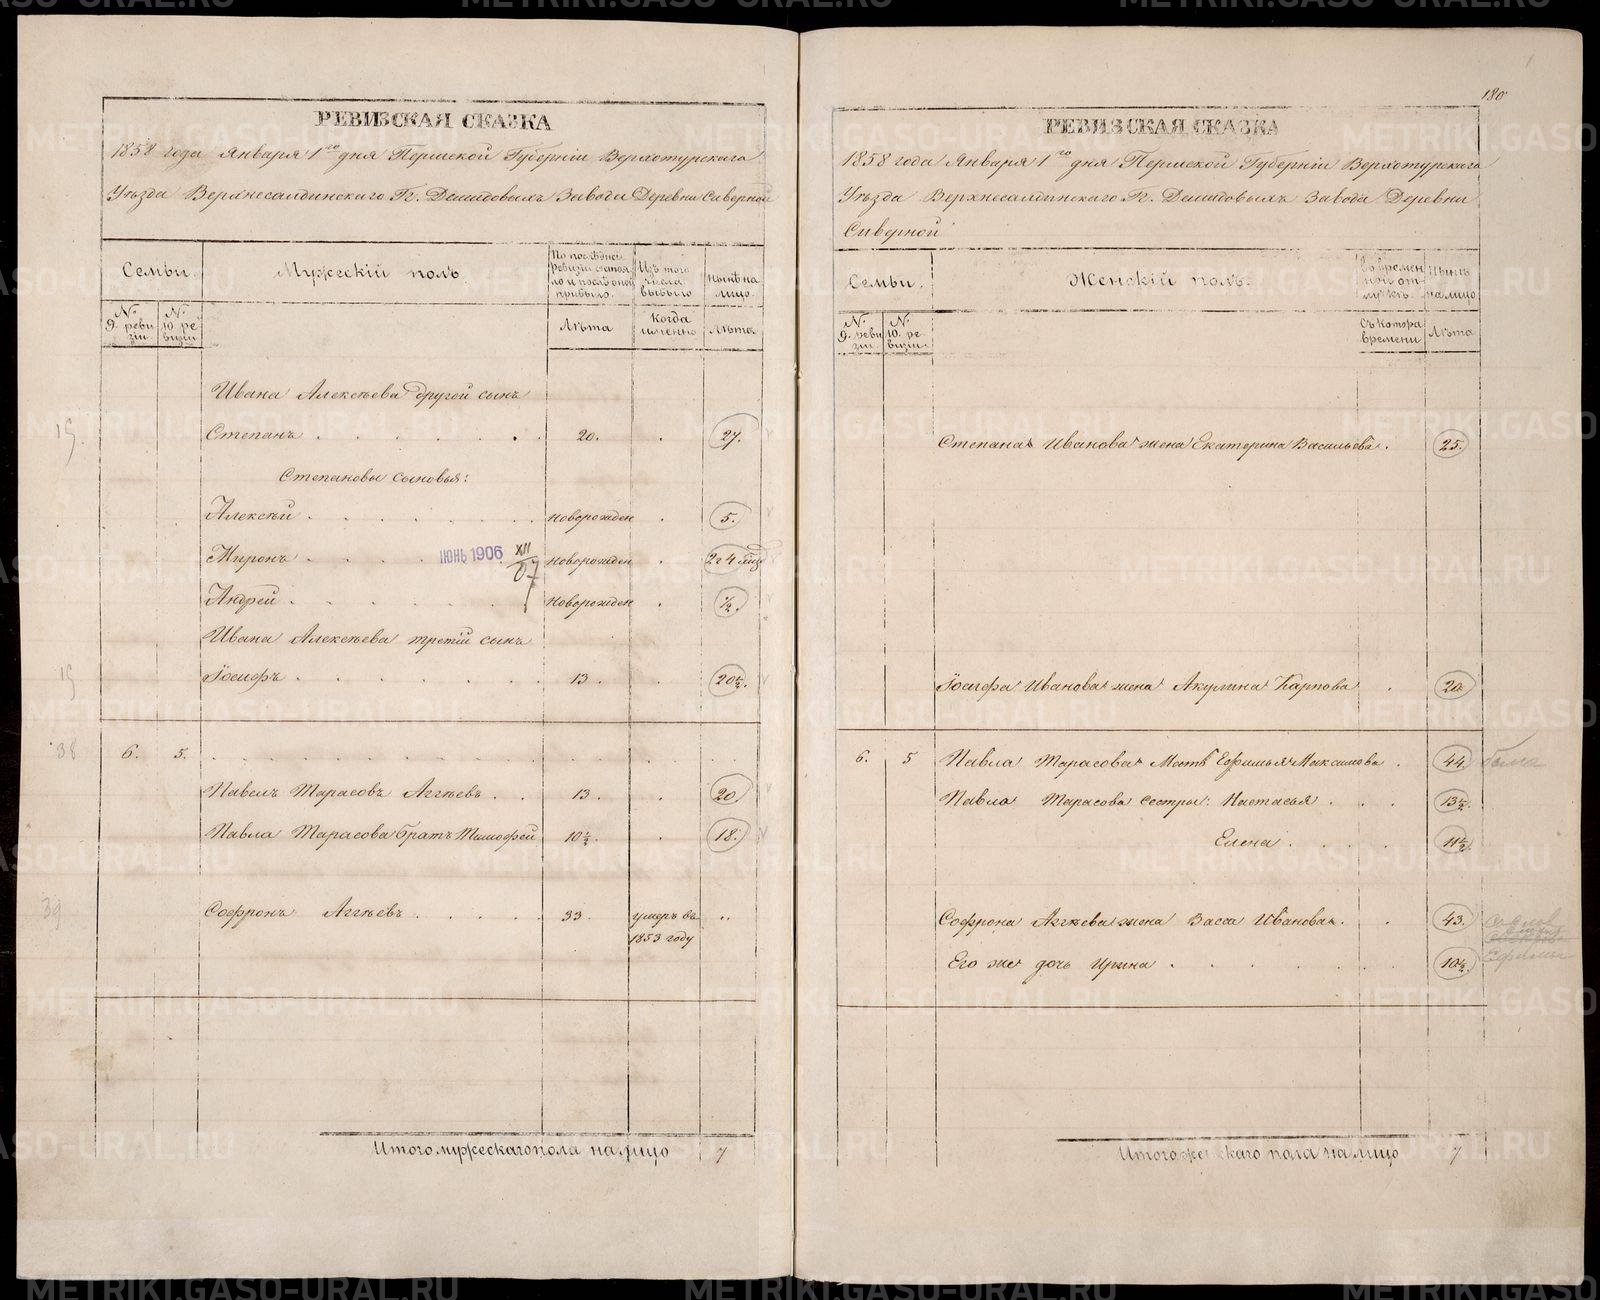 РЕВИЗСКАЯ СКАЗКА
1858 года Января 1го дня Пермской Губернiи Верхотурскаго
Уѣзда Верхнесалдинскаго Гг. Демидовыхъ Завода Деревни Сиверной
Семьи.
Мужескiй полъ.
По послѣдней ревизiи состояло и послѣ оной прибыло.
Изъ того числа выбыло
Нынѣ на лицо.
№ 9. ревизiи.
№ 10. ревизiи
Лѣта
Когда именно
Лѣта
Ивана Алексѣева другой сынъ
15
Степанъ 20. 27.
Степановы сыновья:
Алексѣй новорожден 5.
Миронъ ИЮНЬ 1906 XII 07 новорожден 2 4
Андрей новорожден ½.
Ивана Алексѣева третiй сынъ
15
Iосифъ 13. 20½.
38 6. 5.
Павелъ Тарасовъ Аггѣевъ 13. 20
Павла Тарасова братъ Тимофей 10½. 18.
39 Софронъ Аггѣевъ 33. умеръ въ
1853 году
Итого мужескаго пола на лицо 7
180
РЕВИЗСКАЯ СКАЗКА
1858 года Января 1го дня Пермской Губернiи Верхотурскаго
Уѣзда Верхнесалдинскаго Гг. Демидовыхъ Завода Деревни
Сиверной
Семьи.
Женскiй полъ.
Во временной отлучкѣ.
Нынѣ на лицо.
№ 9. ревизiи.
№ 10. ревизiи.
Съ котора времени
Лѣта
Степана Иванова жена Екатерина Васильева. 25.
Iосифа Иванова жена Акулина Карпова 20
6. 5 Павла Тарасова Мать Ефимья Максимова. 44.
Павла Тарасова сестры: Настасья 13½.
Елена 11½.
Софрона Аггѣева жена Васса Иванова. 43.
Его же дочь Ирина 10½.
Итого женскаго пола на лицо 7
METRIKI.GASO-URAL.RU